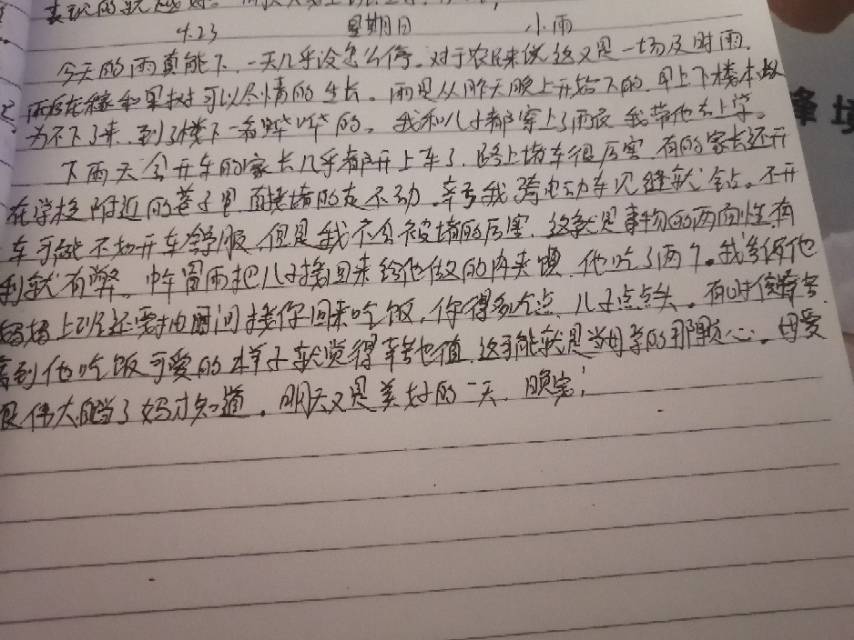 表现的就越好。
4.23 星期日 小雨
今天的雨真能下，一天几乎没怎么停。对于农民来说这又是一场及时雨。
庄稼和果树可以尽情的生长。雨是从昨天晚上开始下的，早上下楼本以
为不下了来，到了楼下一看哗哗的。我和儿子都穿上了雨衣我带他去上学。
下雨天会开车的家长几乎都开上车了，路上堵车很厉害，有的家长还开
在学校附近的巷子里，直接堵的在不动，辛亏我骑电动车见缝就钻。不开
车可能不如开车舒服，但是我不会被堵的厉害，这就是事物的两面性有
利就有弊。中午冒雨把儿子接回来给他做的肉夹馍，他吃了两个。我告诉他
妈妈上班还要抽时间接你回来吃饭，你得多吃点，儿子点点头。有时候
看到他吃饭可爱的样子就觉得辛苦也值，这可能就是当母亲的那颗心。母爱
是伟大的当了妈才知道。明天又是美好的一天，晚安！
锋 境